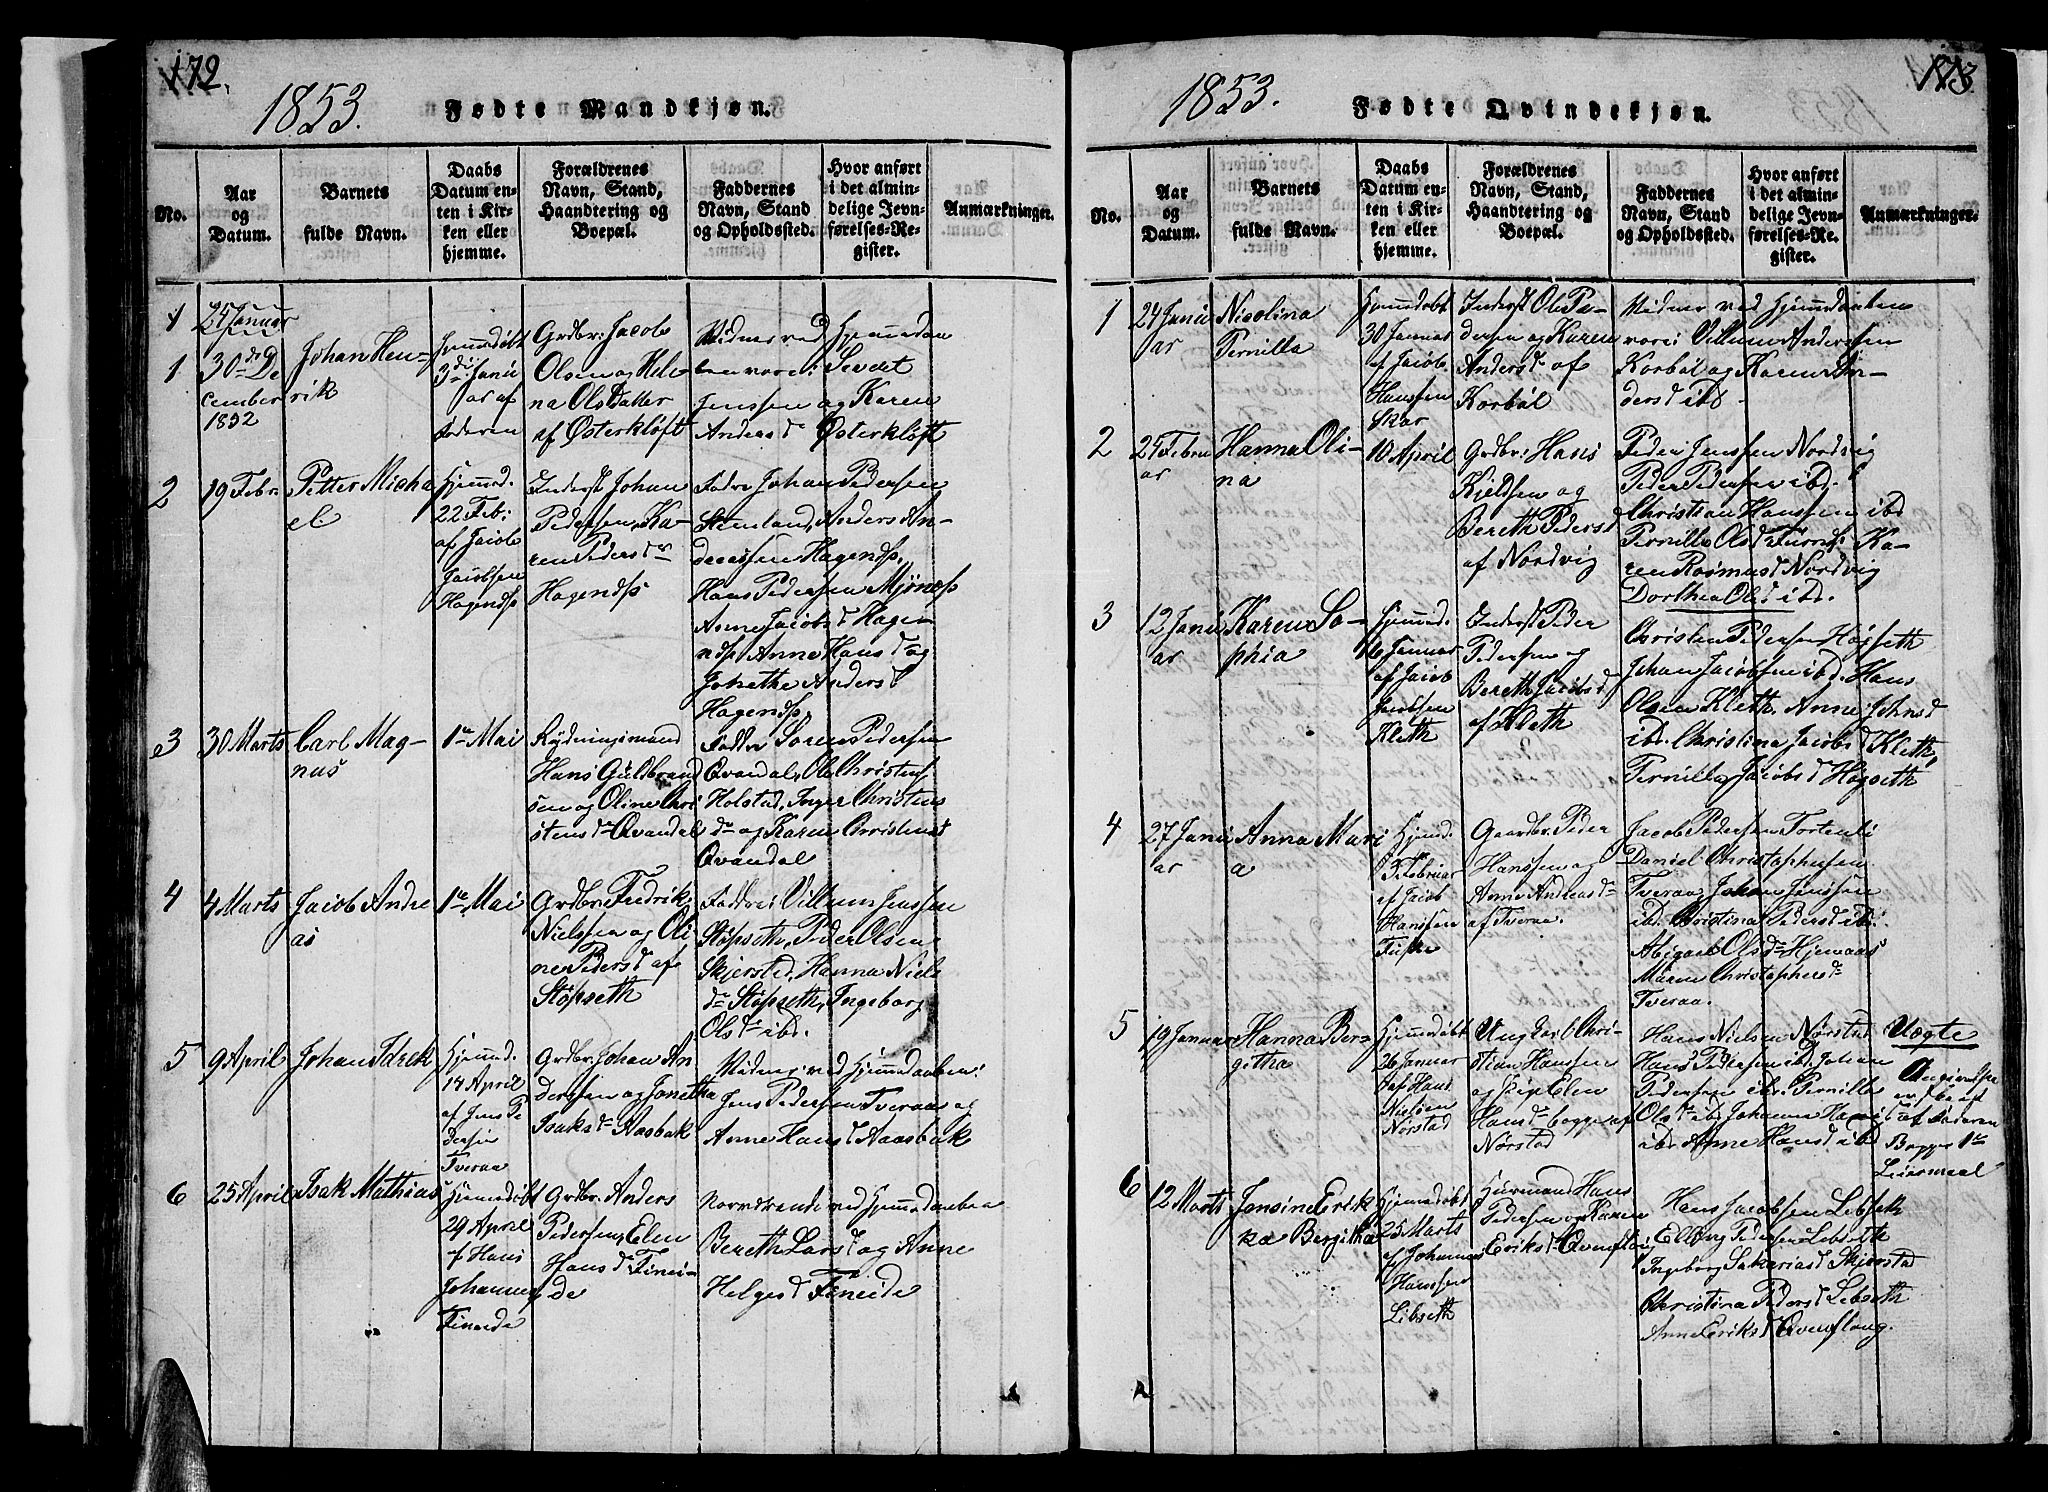 172.
1853.
Fødte Mandkjøn.
No.
Aar og Datum.
Barnets fulde Navn.
Daabs Datum enten i Kirken eller hjemme.
Forældrenes Navn, Stand, Haandtering og Boepæl.
Faddernes Navn, Stand og Opholdssted.
Hvor anført i det almindelige Jevnførelses-Register.
Anmarkninger.
1
24 Januar
1
30 De
cember
1852
Johan Hen-
rik
3 Janu
ar af
Grdbr: Jacob
Olsen og Hele-
na Olsdatter
af Østerkløft
Vidner ved Hjemmedaa
ben vare: Severt
Jenssen og Karen
Anders d Østerkløft
2
19 Febr
Petter Micha
el
Hjemd.
22 Feb:
af Jacob
Jacobsen
Inderst Johan
Pedersen, Ka-
ren Peders dr
Faddre Johan Pedersen
Anders An-
derssen
Hans Pedersen
Anne Jacobs d
Anne Hans d og
Jonetha Anders d
3
30 Marts
Carl Mag-
nus
1te Mai
Rydningsmand
Hans Guldbrand
sen og Oline Chri
stens d Qvandal
Faddre Søren Pedersen
Qvandal, Ole Christens
Holstad, Inger Christens
dr og Karen Christens d
Qvandal
4
4 Marts
Jacob Andre
as
1te Mai
Grdbr: Fredrik
Nielssen og Oli
ne Peders d af
Støpseth
Faddre: Villum Jenssen
Støpseth, Peder Olsen
Skjerstad, Hanna Niels
dr Støpseth, Ingeborg
Ols dr ibd.
5
9 April
Johan Idrek
Hjemd.
14 April
af Jens Pe
dersen
Tveraa
Grdbr. Johan An
derssen og Jonetha
Isaks dr Aasbak
Vidner ved Hjemmedaaben:
Jens Pedersen Tveraa og
Anne Hans d Aasbak
6
25 April
Isak Mathias
Hjemmedøbt
29 April
af Hans
Johannes
Fineide
Grdbr. Anders
Pedersen, Elen
Hans d Finei-
de
Nærværende ved Hjemmedaaben
Bereth Lars d og Anne
Helges d Fineide
173
1853.
Fødte Qvindekjøn.
No.
Aar og Datum.
Barnets fulde Navn.
Daabs Datum enten i Kirken eller hjemme.
Forældrenes Navn, Stand, Haandtering og Boepæl.
Faddernes Navn, Stand og Opholdssted.
Hvor anført i det almindelige Jevnførelses-Re. gister.
Anmarkninger.
1
24 Janu
ar
Nicolina
Pernilla
Hjemmedøbt
30 Januar
af Jacob
Hanssen
Skar
Inderst Ole Pe-
dersen og Karen
Anders d af
Korbøl
Vidner ved Hjemmedaaben
vare: Villum Anderssen
Korbøl og Karen An-
ders d ibd
2
25 Febru
ar
Hanna Oli-
na
10 April
Grdbr: Hans
Kjeldsen og
Bereth Peders d
af Nordvig
Peder Jenssen Nordvig
Peder Pedersen ibd.
Christian Hanssen ibd
Pernilla Ols d Ka-
ren Rasmus d Nordvig
Dorthea Ols d ibd.
3
12 Janu
ar
Karen So-
phia
Hjemmd.
16 Januar
af Jacob
Jacobsen
Kleth
Inderst Peder
Pedersen og
Bereth Jacobs d
af Kleth
Christen Pedersen Høgseth
Johan Jacobsen ibd. Hans
Olsen Kleth, Anne Johns d
ibd. Christina Jacobs d Kleth,
Pernilla Jacobs d Høgseth
4
27 Janu
ar
Anna Mari
a
Hjemd.
Februar
af Jacob
Hanssen
Gaardbr. Peder
Hanssen og
Anne Andreas dr
af Tveraa.
Jacob Pedersen
Daniel Christophersen
Tveraa, Johan Jenssen
ibd. Christina Peders d ibd:
Abigael Ols dr
Maren Christophers dr
Tveraa.
5
19 Januar
Hanna Ber-
githa
Hjemmedøbt
26 Januar
af Hans
Nielsen
Nørstad
Ungkarl Chri-
stian Hanssen
og Pige Elen
Hans dr begge af
Nørstad
Hans Nielsen Nørstad
Hans Pedersen ibd. Johan
Pedersen ibd. Pernilla
Ols dr ibd Johanna Hans d
ibd Anne Hans d ibd
Uægte
af Faderen
Begges 1te
Leiermaal
6
12 Marts
Jensine Erik
ka Bergitha
Hjemmedøbt
25 Marts
af Johannes
Hanssen
Libseth
Huusmand Hans
Pedersen og Karen
Eriks d Qvenflog
Hans Jacobsen Libseth
Elling Pedersen Libseth
Ingeborg Sakarias d Skjerstad
Christina Peders d Libseth
Anne Eriks d Qvenflaug.